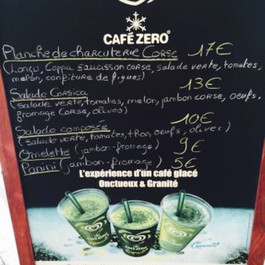 CAFÉ ZERO°
Planche de charcuterie Corse 17€
(Lonzu, Coppa, saucisson corse, salade verte, tomates,
melon, confiture de figues)
Salade Corsica 13€
(salade verte, tomates, melon, jambon corse, oeufs,
fromage Corse, olives)
Salade composée 10€
(salade verte, tomates, thon, oeufs, olives)
Omelette (jambon-fromage) 9€
Panini (jambon-fromage) 5€
L'expérience d'un café glacé
Onctueux & Granité